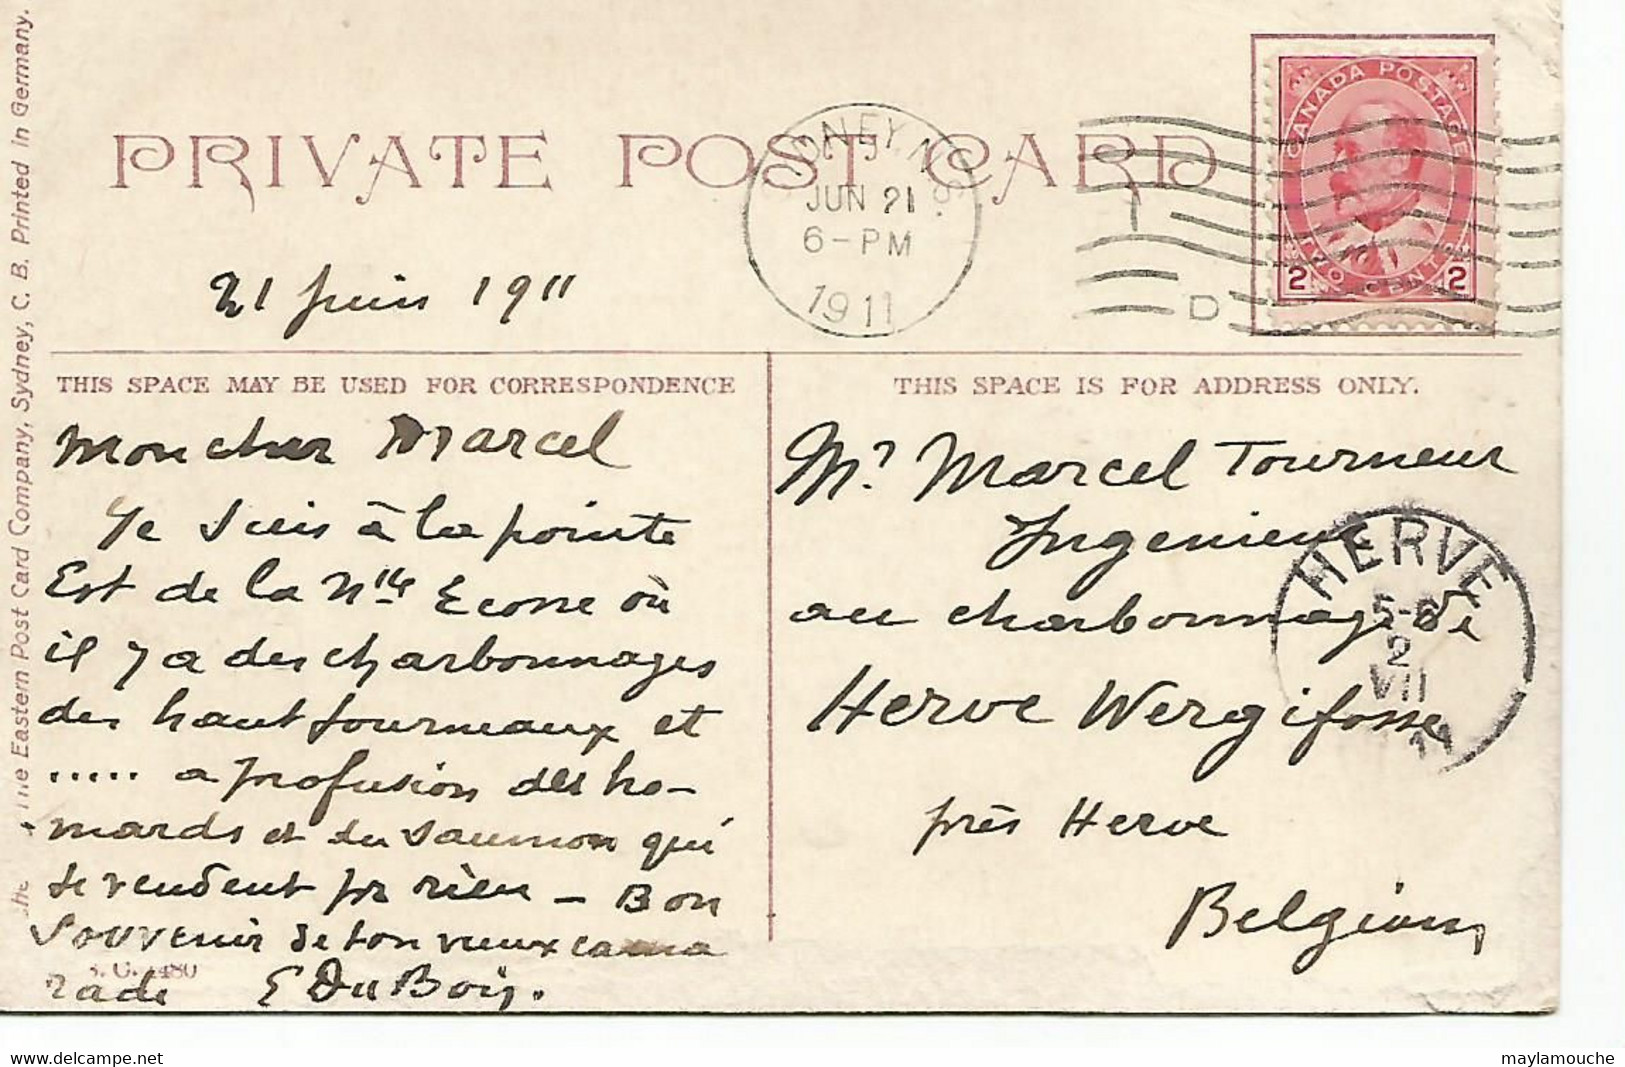 The Eastern Post Card Company, Sydney, C. B. Printed in Germany.
PRIVATE POST CARD
SYDNEY, N.S.
JUN 21
6-PM
1911
D
CANADA POSTAGE
2 TWO CENTS 2
21 juin 1911
THIS SPACE MAY BE USED FOR CORRESPONDENCE
Mon cher Marcel
Je suis à la pointe
Est de la Nlle Ecosse où
il y a des charbonnages
des haut fourneaux et
..... a profusion des ho-
mards et du saumon qui
se vendent pr rien - Bon
souvenir de ton vieux cama
rade E DuBois.
S. C. 1480
THIS SPACE IS FOR ADDRESS ONLY.
Mr Marcel Tourneur
Ingenieur
au charbonnage de
Herve Wergifosse
près Herve
Belgium
HERVE
5-6
2
VII
11
www.delcampe.net
maylamouche